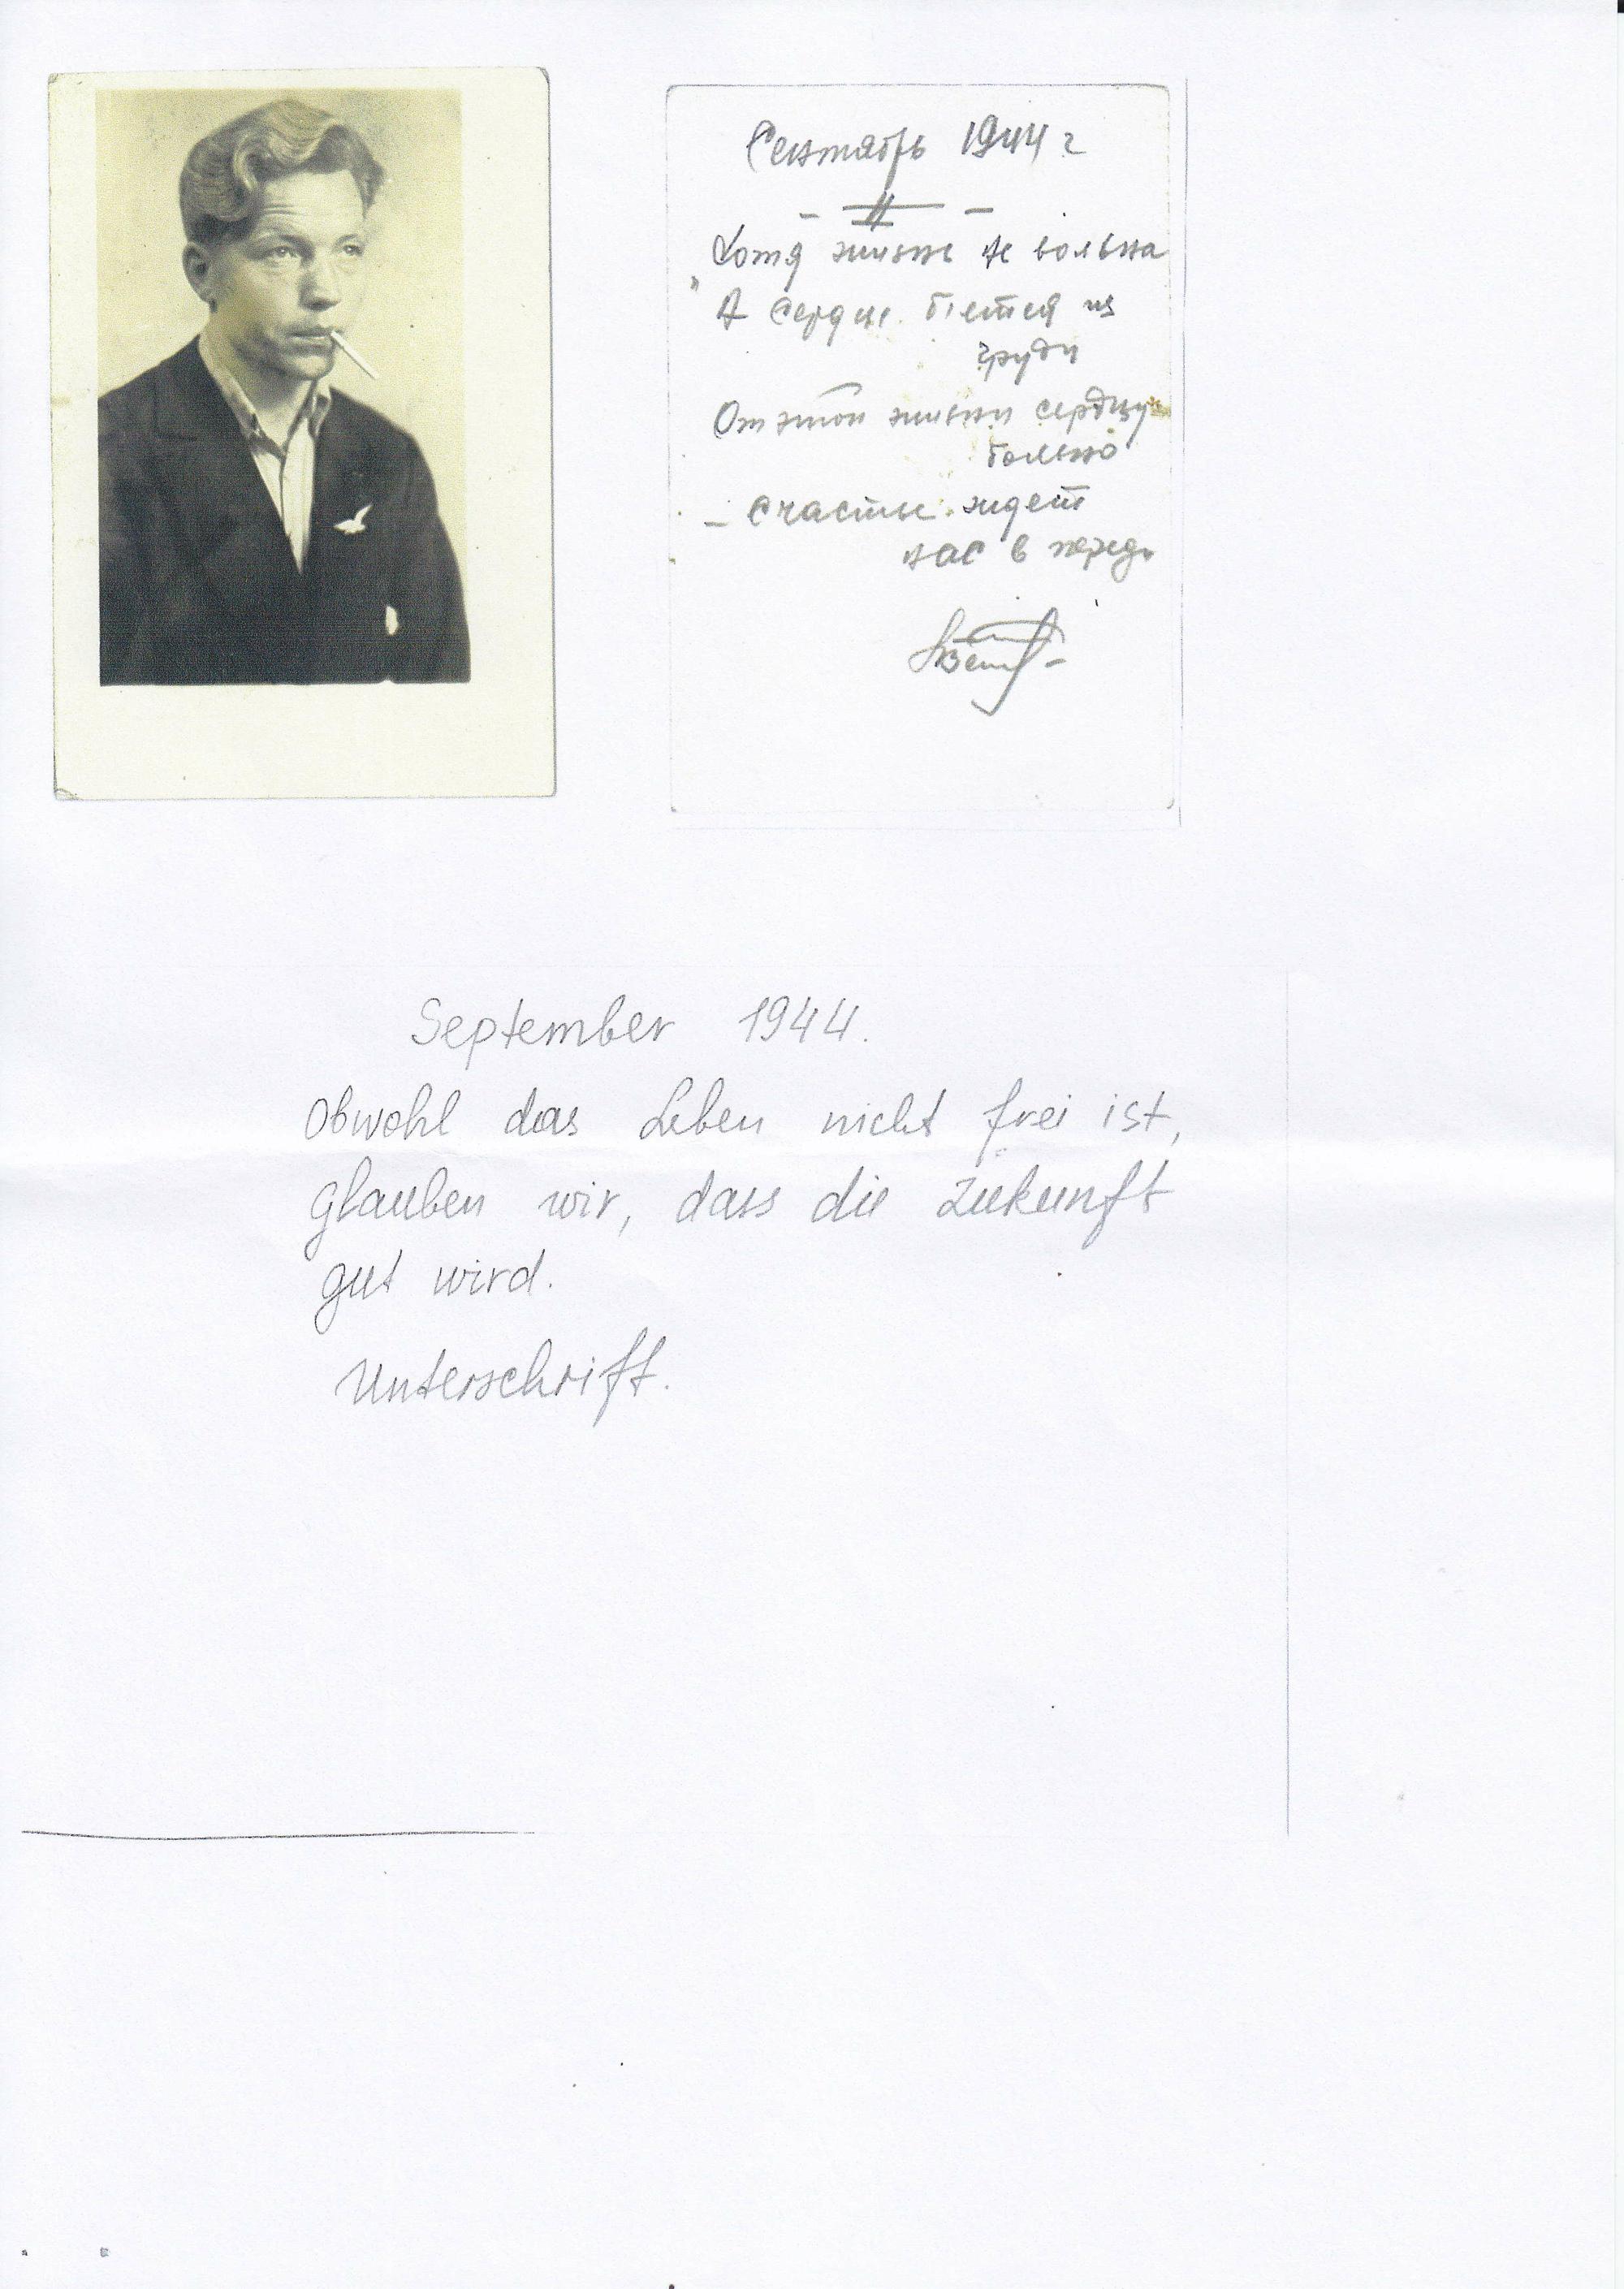 Сентябрь 1944 г
Хотя жизнь не вольна
"А сердце бьется из
груди
От этой жизни сердцу
больно
- счастье ждет
нас в переди
September 1944.
Obwohl das Leben nicht frei ist,
glauben wir, dass die Zukunft
gut wird.
Unterschrift.